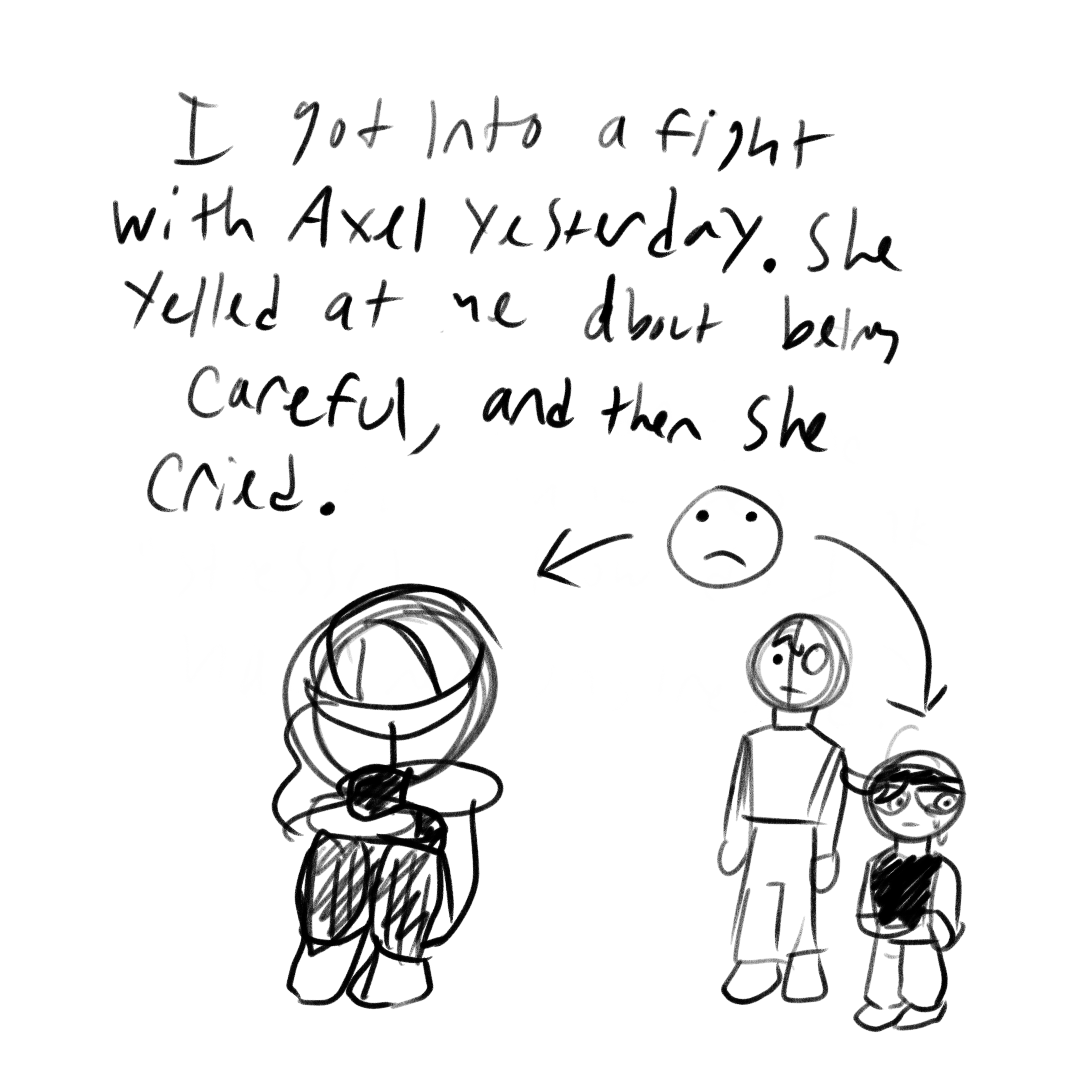 I got into a fight
with Axel yesterday. She
yelled at me about being
careful, and then she
cried.